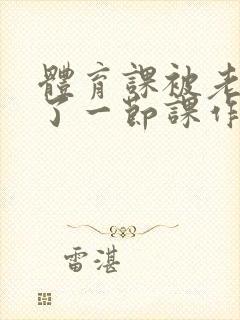 體育課被老
了一節課作
雷湛